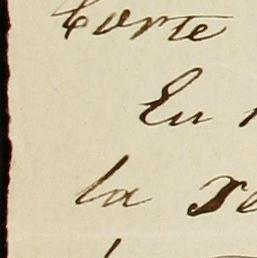 Corte
En
la